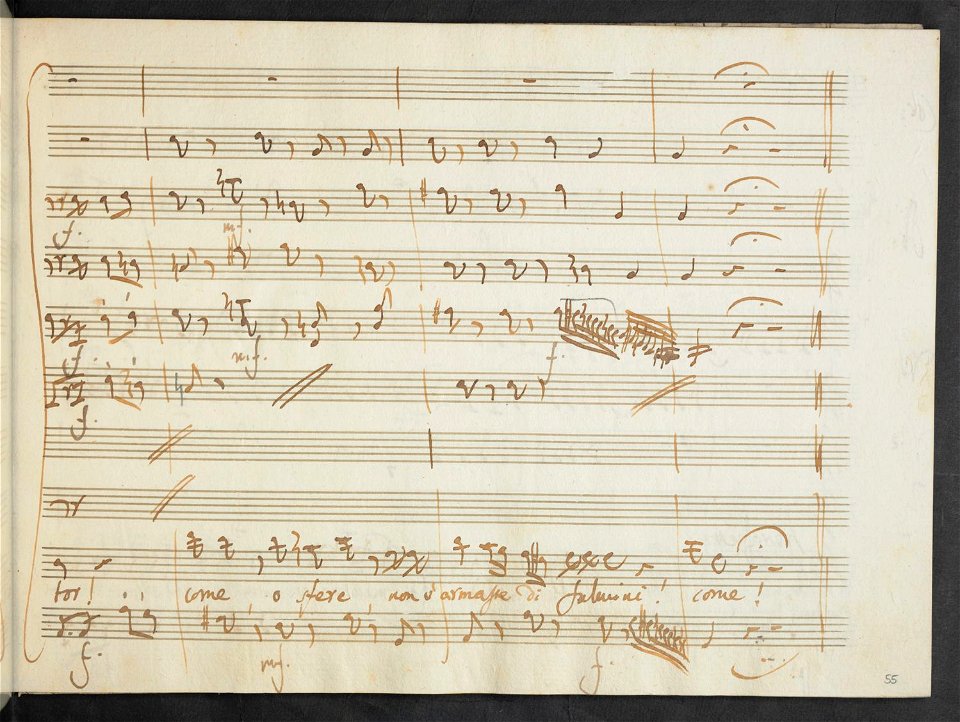 f.
mf.
f. mf. f.
f.
tor! come o sfere non v'armaste di fulmini! come!
f. mf. f.
55